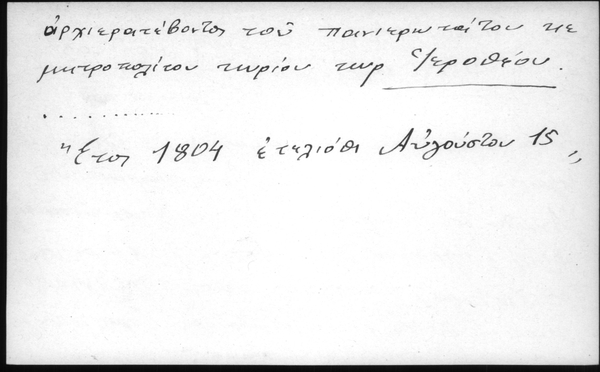 ἀρχιερατέβοντος τοῦ πανιερωτάτου κὲ
μητροπολίτου κυρίου κυρ Ἱεροθέου.
............
"Ετος 1804 ἐτελιόθι Αὐγούστου 15 „